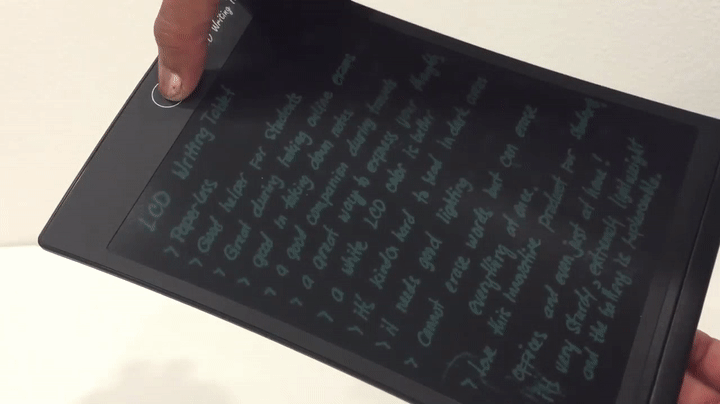 Writing
LCD Writing Tablet
> Paperless
> Good helper for students
> Great during taking online exams
> good in taking down notes
> a good companion during
> a great way to express your thoughts
> a white LCD color is better
> it's kinda hard to read in dark areas
> it needs good lighting
> Cannot erase words but can erase
everything at once.
> love this innovative product for students,
offices and even just at home!
It's very sturdy, extremely lightweight
and the battery is replaceable.